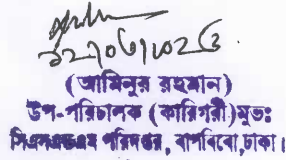 ১২/০৩/২০২৩
(আমিনুর রহমান)
উপ-পরিচালক (কারিগরী)মুডঃ
সিএসএন্ডএম পরিদপ্তর, বাপবিবো,ঢাকা।